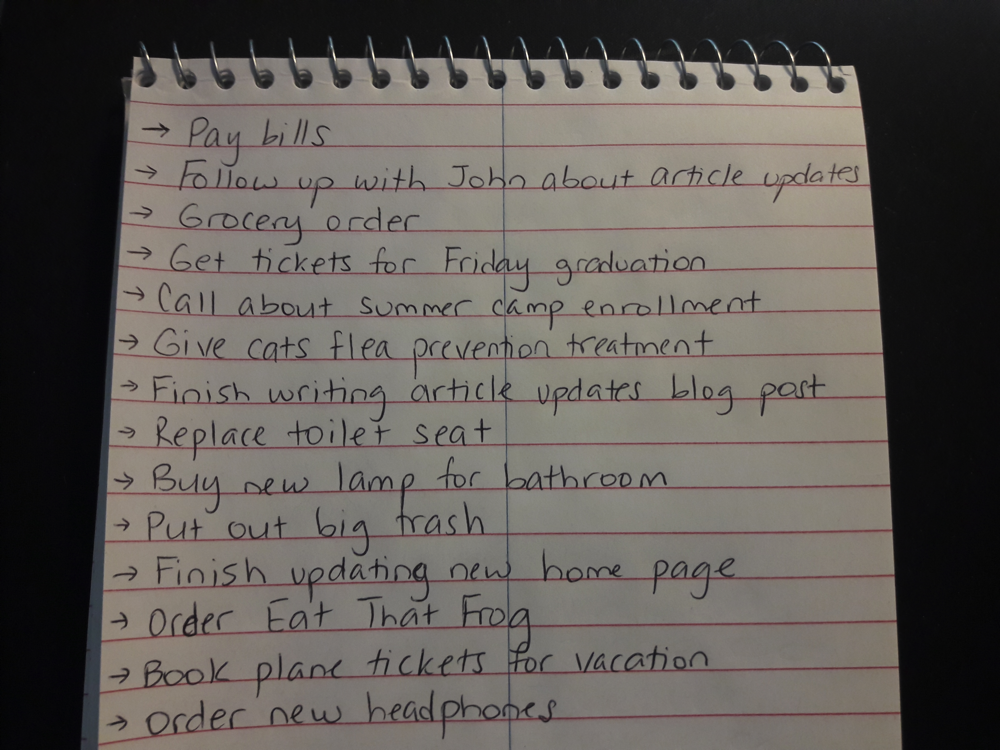 → Pay bills
→ Follow up with John about article updates
→ Grocery order
→ Get tickets for Friday graduation
→ Call about summer camp enrollment
→ Give cats flea prevention treatment
→ Finish writing article updates blog post
→ Replace toilet seat
→ Buy new lamp for bathroom
→ Put out big trash
→ Finish updating new home page
→ Order Eat That Frog
→ Book plane tickets for vacation
→ Order new headphones